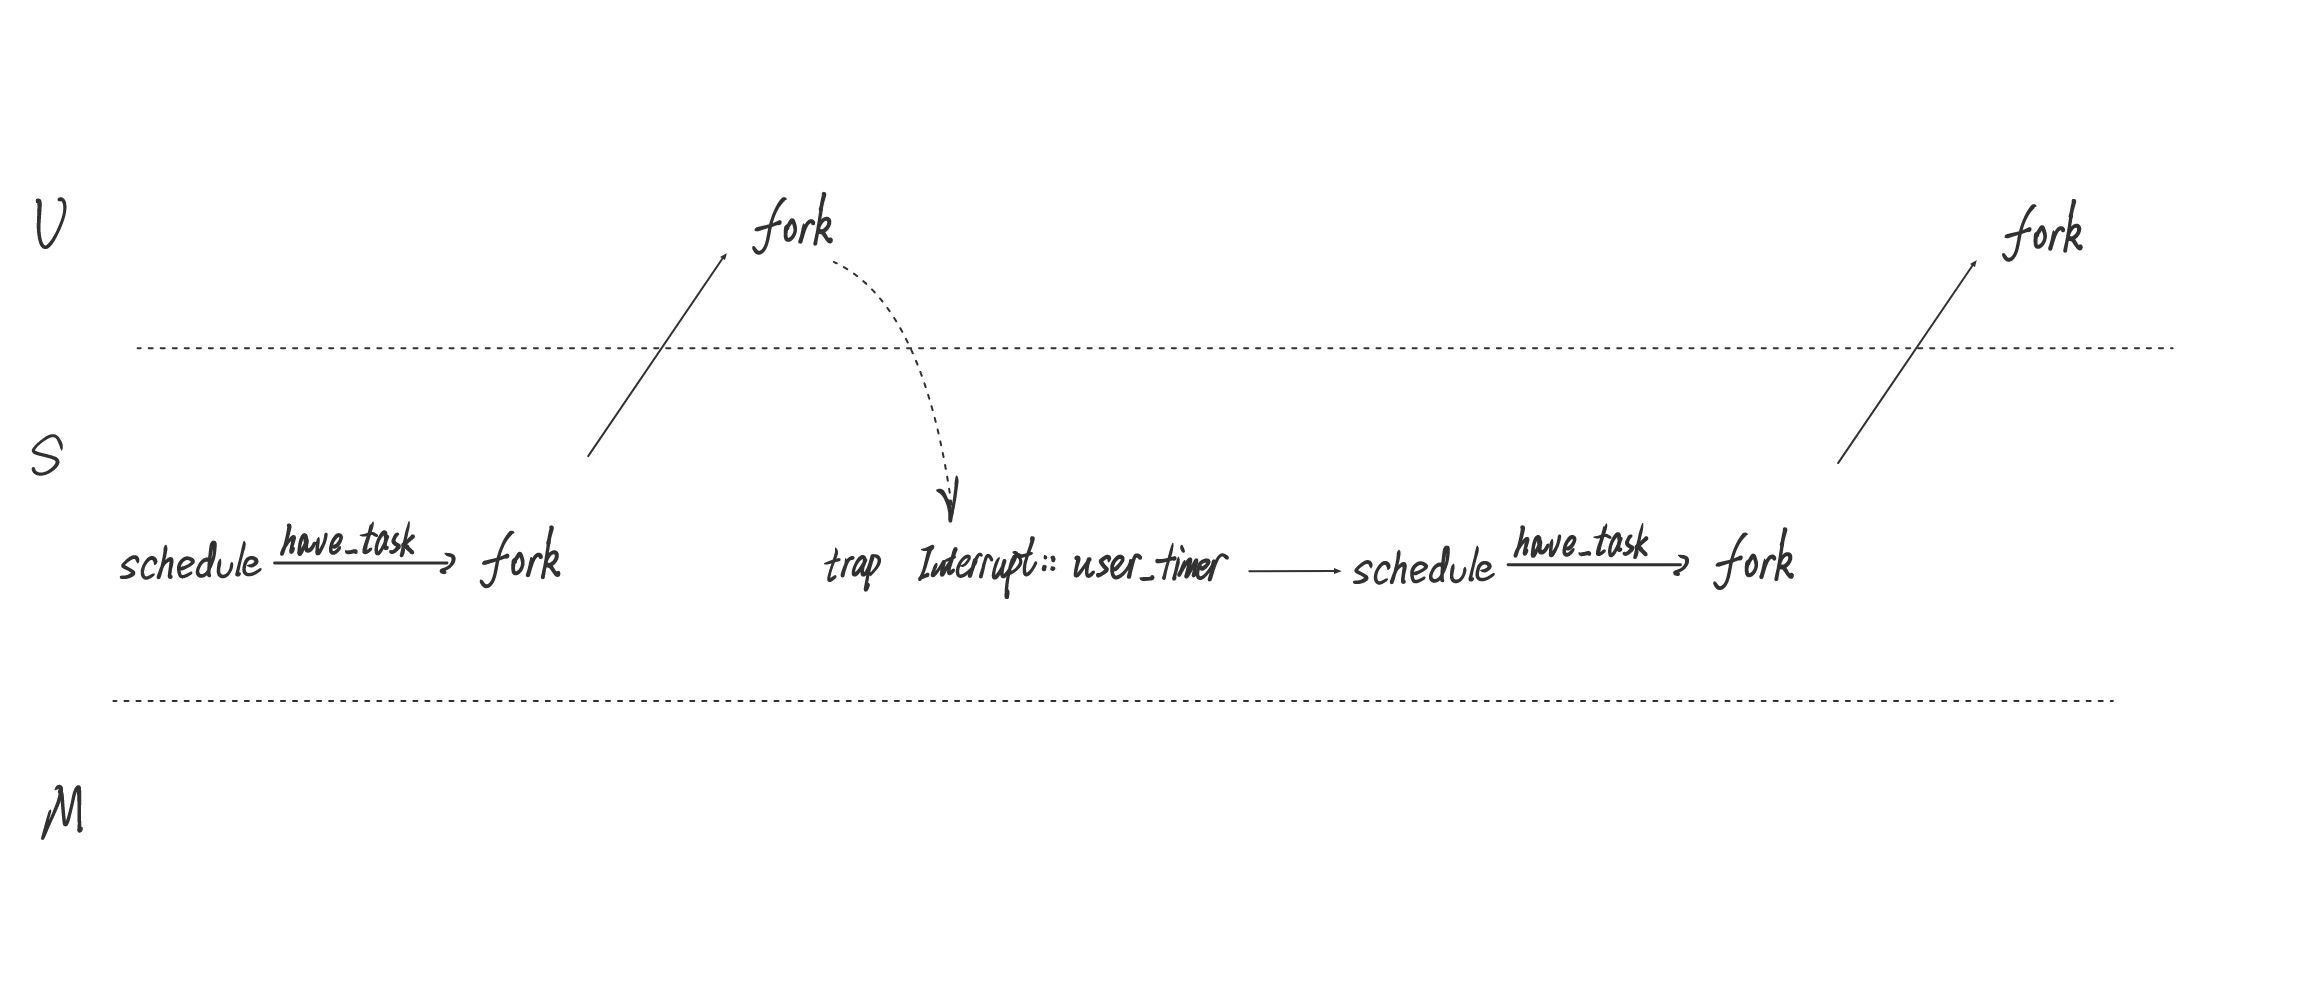 U
fork
fork
S
schedule
have_task
fork
trap Interrupt::user_timer
schedule
have_task
fork
M